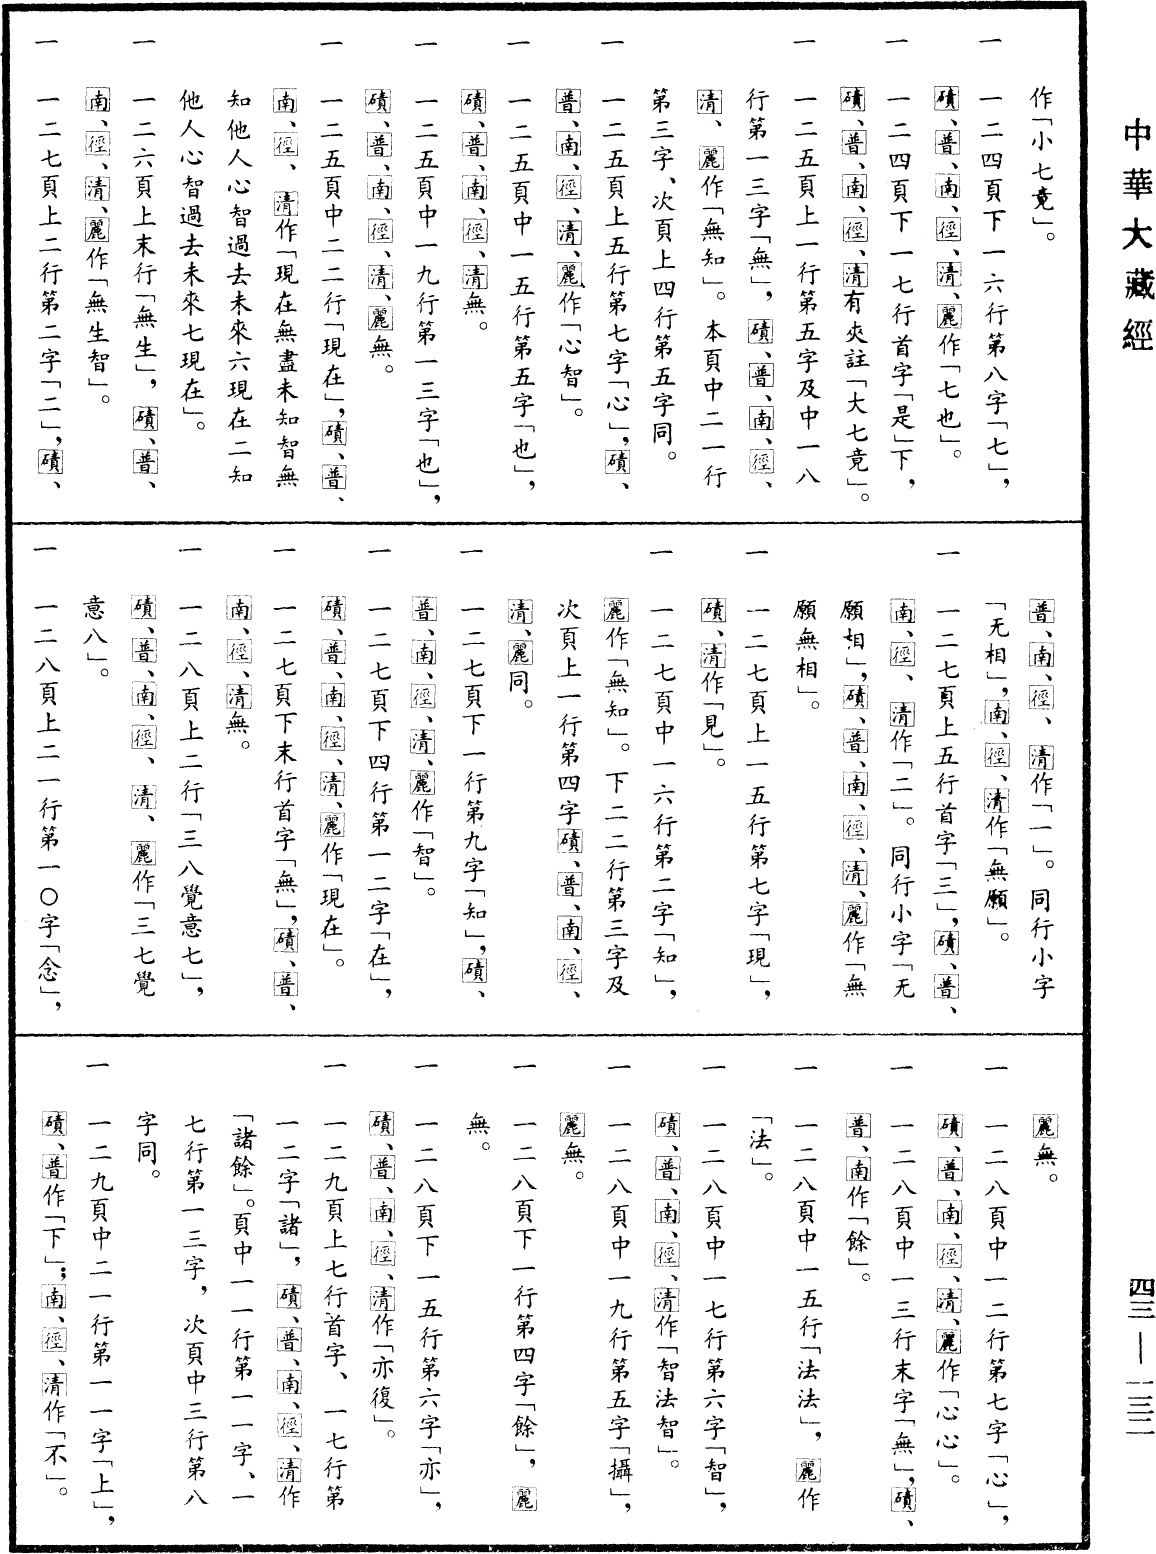 中華大藏經
四三—一三二
作「小七竟」。
一 一二四頁下一六行第八字「七」，
磧、普、南、徑、清、麗作「七也」。
一 一二四頁下一七行首字「是」下，
磧、普、南、徑、清有夾註「大七竟」。
一 一二五頁上一行第五字及中一八
行第一三字「無」，磧、普、南、徑、
清、麗作「無知」。本頁中二一行
第三字、次頁上四行第五字同。
一 一二五頁上五行第七字「心」，磧、
普、南、徑、清、麗作「心智」。
一 一二五頁中一五行第五字「也」，
磧、普、南、徑、清無。
一 一二五頁中一九行第一三字「也」，
磧、普、南、徑、清、麗無。
一 一二五頁中二二行「現在」，磧、普、
南、徑、清作「現在無盡未知智無
知他人心智過去未來六現在二知
他人心智過去未來七現在」。
一 一二六頁上末行「無生」，磧、普、
南、徑、清、麗作「無生智」。
一 一二七頁上二行第二字「二」，磧、
普、南、徑、清作「一」。同行小字
「无相」，南、徑、清作「無願」。
一 一二七頁上五行首字「三」，磧、普、
南、徑、清作「二」。同行小字「无
願相」，磧、普、南、徑、清、麗作「無
願無相」。
一 一二七頁上一五行第七字「現」，
磧、清作「見」。
一 一二七頁中一六行第二字「知」，
麗作「無知」。下二二行第三字及
次頁上一行第四字磧、普、南、徑、
清、麗同。
一 一二七頁下一行第九字「知」，磧、
普、南、徑、清、麗作「智」。
一 一二七頁下四行第一二字「在」，
磧、普、南、徑、清、麗作「現在」。
一 一二七頁下末行首字「無」，磧、普、
南、徑、清無。
一 一二八頁上二行「三八覺意七」，
磧、普、南、徑、清、麗作「三七覺
意八」。
一 一二八頁上二一行第一〇字「念」，
麗無。
一 一二八頁中一二行第七字「心」，
磧、普、南、徑、清、麗作「心心」。
一 一二八頁中一三行末字「無」，磧、
普、南作「餘」。
一 一二八頁中一五行「法法」，麗作
「法」。
一 一二八頁中一七行第六字「智」，
磧、普、南、徑、清作「智法智」。
一 一二八頁中一九行第五字「攝」，
麗無。
一 一二八頁下一行第四字「餘」，麗
無。
一 一二八頁下一五行第六字「亦」，
磧、普、南、徑、清作「亦復」。
一 一二九頁上七行首字、一七行第
一二字「諸」，磧、普、南、徑、清作
「諸餘」。頁中一一行第一一字、一
七行第一三字，次頁中三行第八
字同。
一 一二九頁中二一行第一一字「上」，
磧、普作「下」；南、徑、清作「不」。